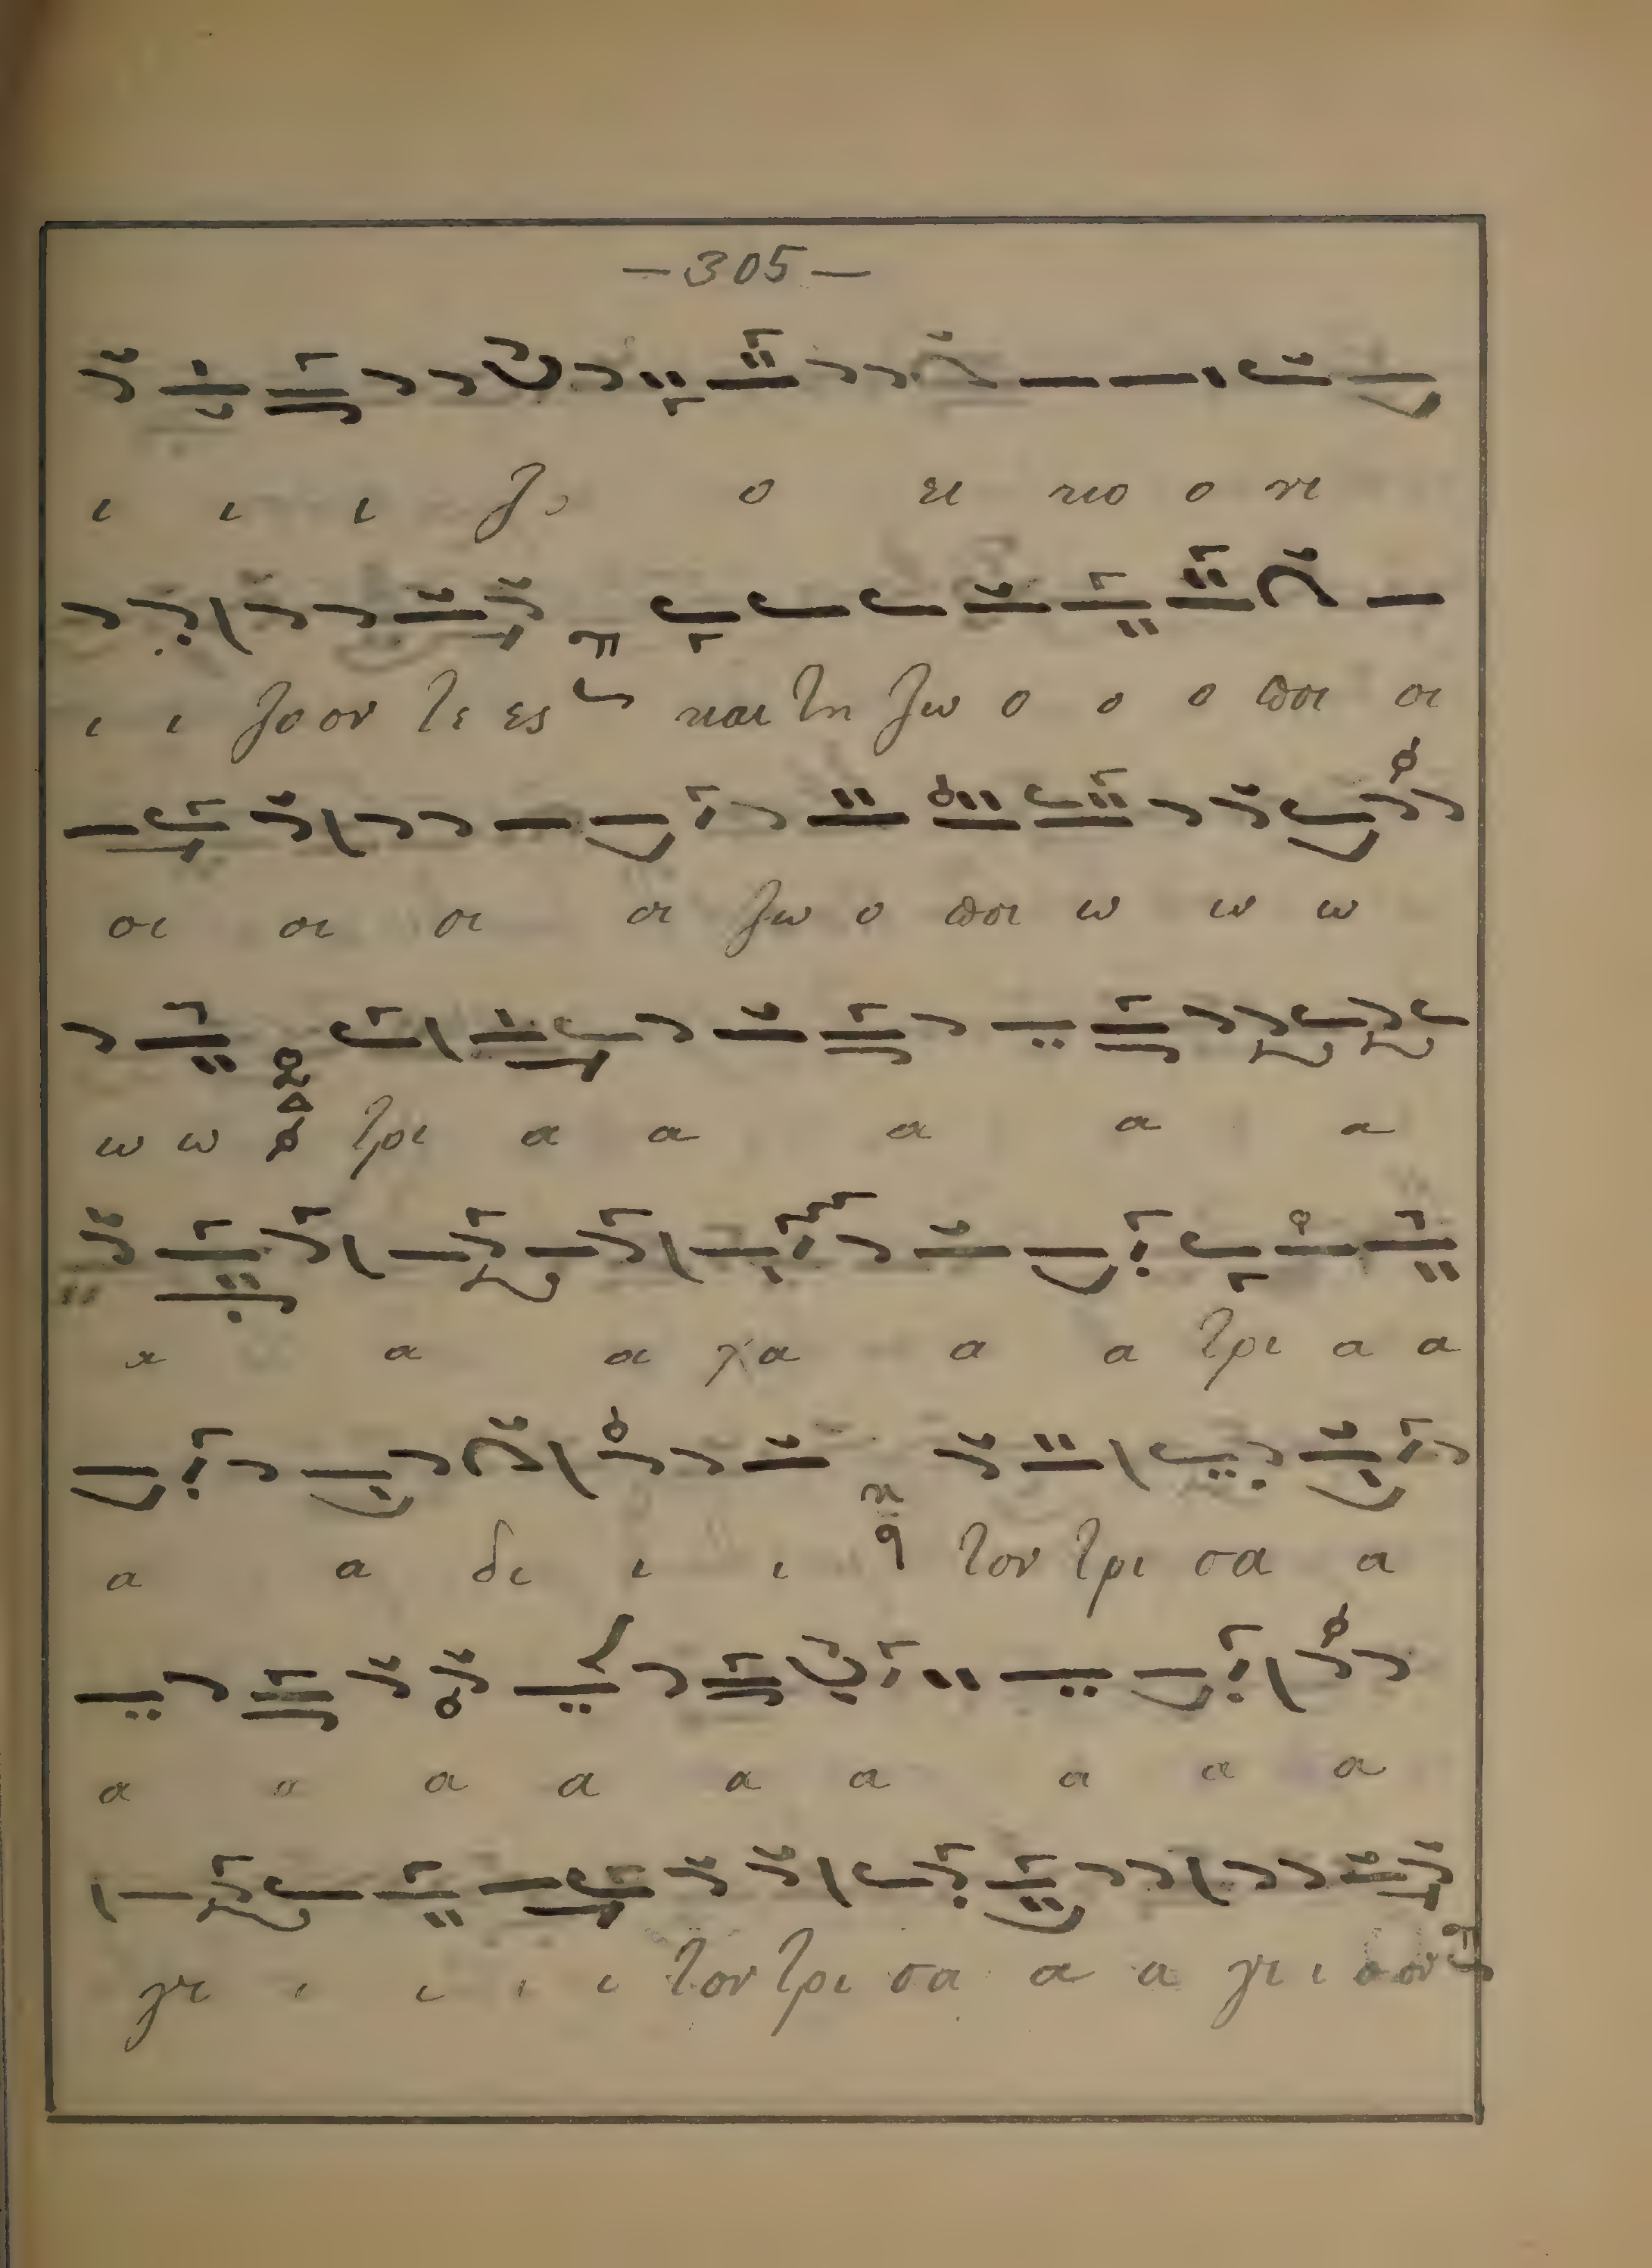 —305—
ι ι ι ζο ο ει κο ο νι
ι ι ζο ον τε ες και τη ζω ο ο ο ποι οι
οι οι οι οι ζω ο ποι ω ω ω
ω ω τρι α α α α α
α α α χα α α τρι α α
α α δι ι ι τον τρι σα α
α α α α α α α α α
γι ι ι ι ι τον τρι σα α α γι ι ον